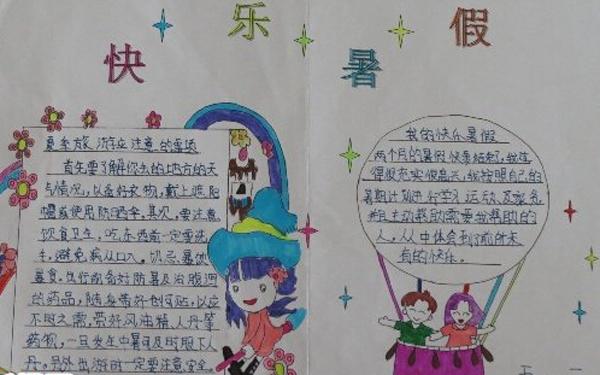 快乐暑假
夏季旅游应注意的事项
首先要了解你去的地方的天
气情况，以备好衣物，戴上遮阳
帽或使用防晒伞。其次，要注意
饮食卫生，吃东西前一定要洗
手，避免病从口入，切忌暴饮
暴食，也许前备好防暑及治腹泻
的药品，随身带好创可贴，以应
不时之需，带好风油精、人丹等
药物，一旦发生中暑可及时服下人
丹。另外出游时一定要注意安全。
我的快乐暑假
两个月的暑假快要结束了，我过
得很充实很高兴，我按照自己的
暑期计划进行学习、运动、及家务
并主动帮助需要我帮助的
人，从中体会到了前所未
有的快乐。
五